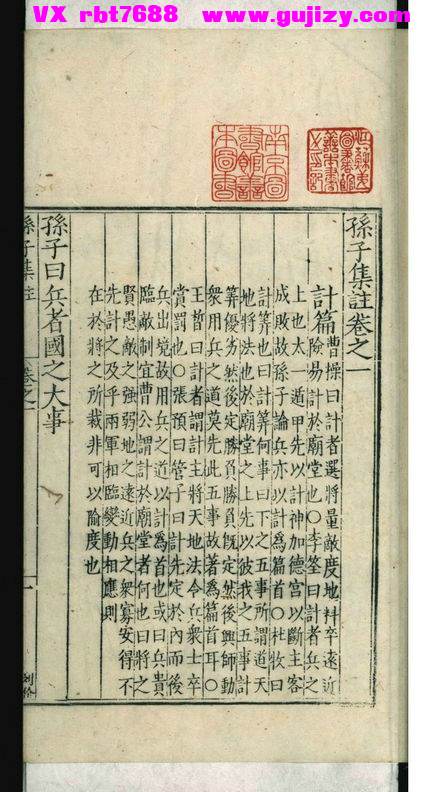 VX rbt7688 www.gujizy.com
孫子集註卷之一
計篇曹操曰計者選將量敵度地料卒遠近
險易計於廟堂也○李筌曰計者兵之
上也太一遁甲先以計神加德宮以斷主客
成敗故孫子論兵亦以計爲篇首○杜牧曰
計算也曰計算何事曰下之五事所謂道天
地將法也於廟堂之上先以彼我之五事計
算優劣然後定勝負勝負旣定然後興師動
衆用兵之道莫先此五事故著爲篇首耳○
王晳曰計者謂計主將天地法令兵衆士卒
賞罰也○張預曰管子曰計先定於內而後
兵出境故用兵之道以計爲首也或曰兵貴
臨敵制宜曹公謂計於廟堂者何也曰將之
賢愚敵之强弱地之遠近兵之衆寡安得不
先計之及乎兩軍相臨變動相應則
在於將之所裁非可以隃度也
孫子曰兵者國之大事
孫子集註 卷之一 一
南京圖書館善本圖書